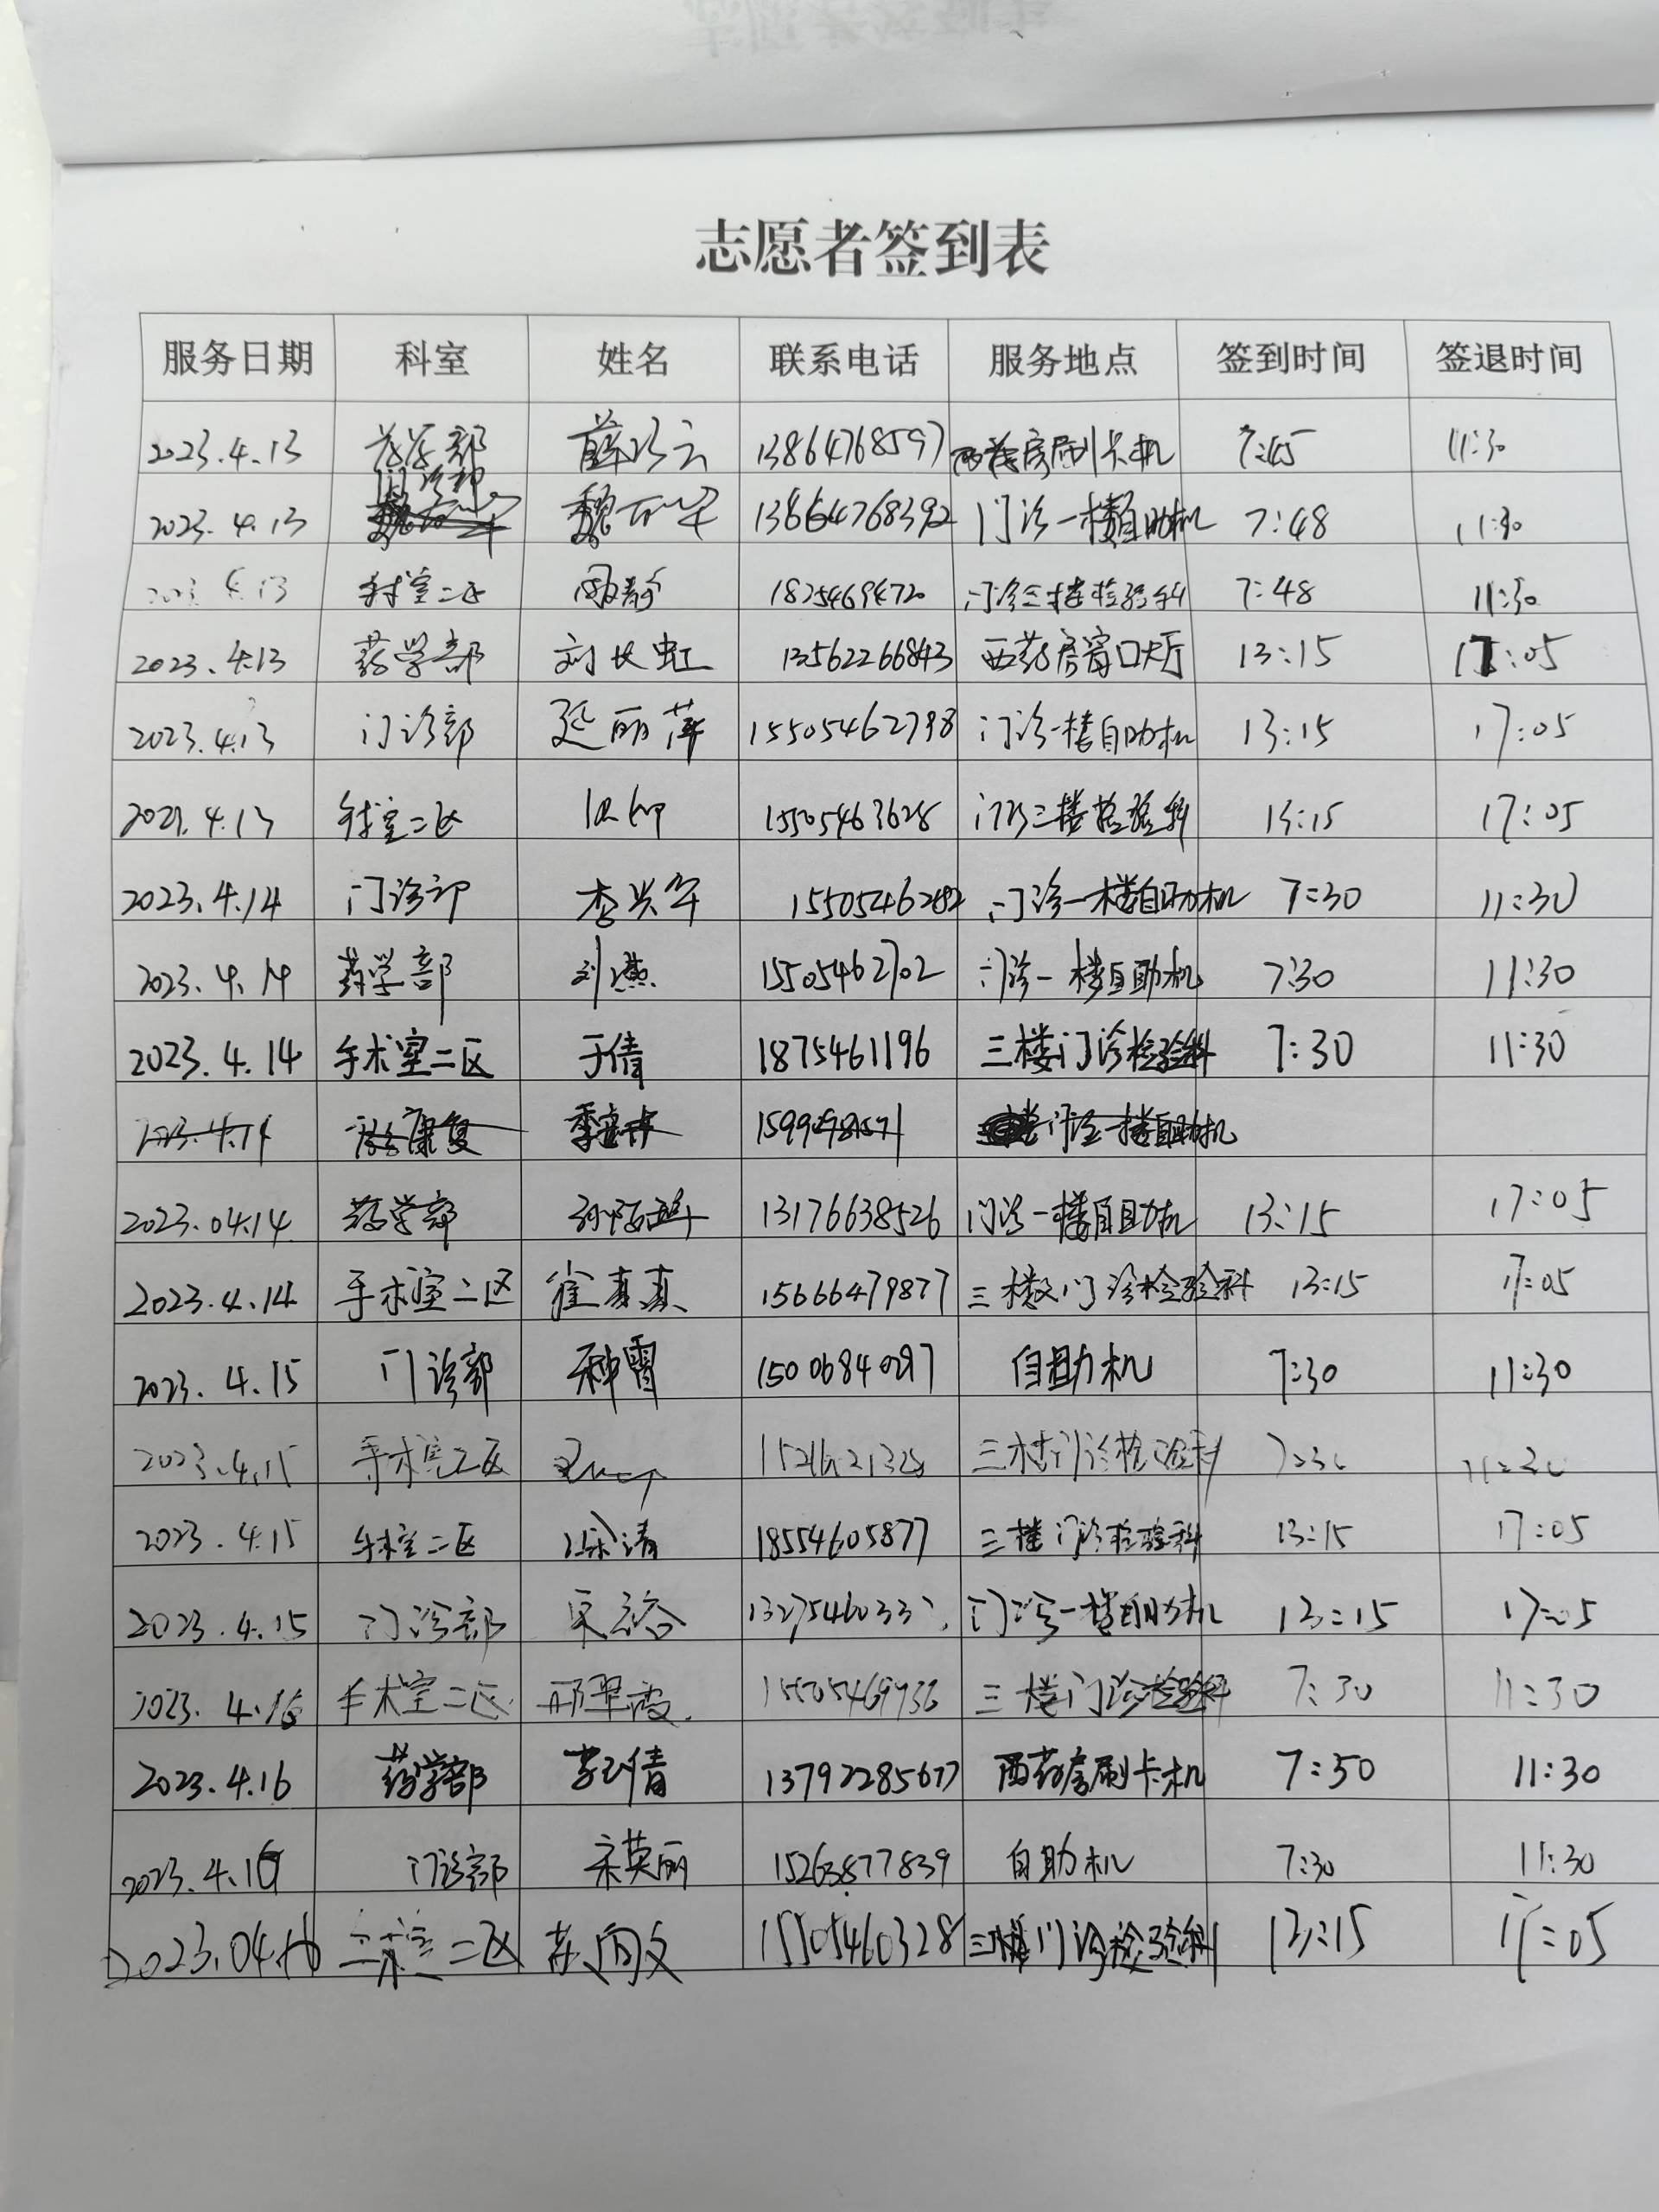 志愿者签到表
服务日期 科室 姓名 联系电话 服务地点 签到时间 签退时间
2023.4.13 药学部 薛巧云 13864768597 西药房刷卡机 7:45 11:30
2023.4.13 门诊部 魏 13864768392 门诊一楼自助机 7:48 11:30
2023 4.13 手术室二区 静 18254694720 门诊三楼检验科 7:48 11:30
2023.4.13 药学部 刘长虹 13562266843 西药房窗口大厅 13:15 17:05
2023.4.13 门诊部 延丽萍 15505462798 门诊一楼自助机 13:15 17:05
2023.4.13 手术室二区 15505463628 门诊三楼检验科 13:15 17:05
2023.4.14 门诊部 李兴军 门诊一楼自助机 7:30 11:30
2023.4.14 药学部 刘燕 15505462702 门诊一楼自助机 7:30 11:30
2023.4.14 手术室二区 于倩 1875461196 三楼门诊检验科 7:30 11:30
2023.4.14 康复 门诊一楼自助机
2023.04.14 药学部 13176638526 门诊一楼自助机 13:15 17:05
2023.4.14 手术室二区 崔真真 15666479877 三楼门诊检验科 13:15 17:05
2023.4.15 门诊部 种雷 15006840297 自助机 7:30 11:30
2023.4.15 手术室二区 三楼门诊检验科 7:30 11:30
2023.4.15 手术室二区 徐清 18554605877 三楼门诊检验科 13:15 17:05
2023.4.15 门诊部 门诊一楼自助机 13:15 17:05
2023.4.16 手术室二区 邢翠霞 三楼门诊检验科 7:30 11:30
2023.4.16 药学部 倩 13792285677 西药房刷卡机 7:50 11:30
2023.4.16 门诊部 宋英丽 15263877839 自助机 7:30 11:30
2023.04.16 手术室二区 苏向文 15505460328 三楼门诊检验科 13:15 17:05